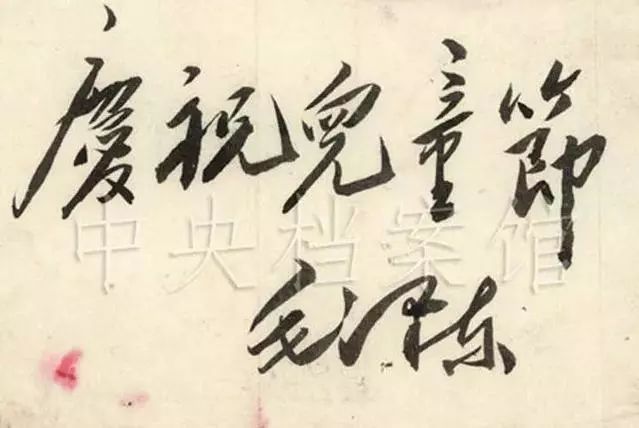 慶祝兒童節
毛澤东
中央档案馆